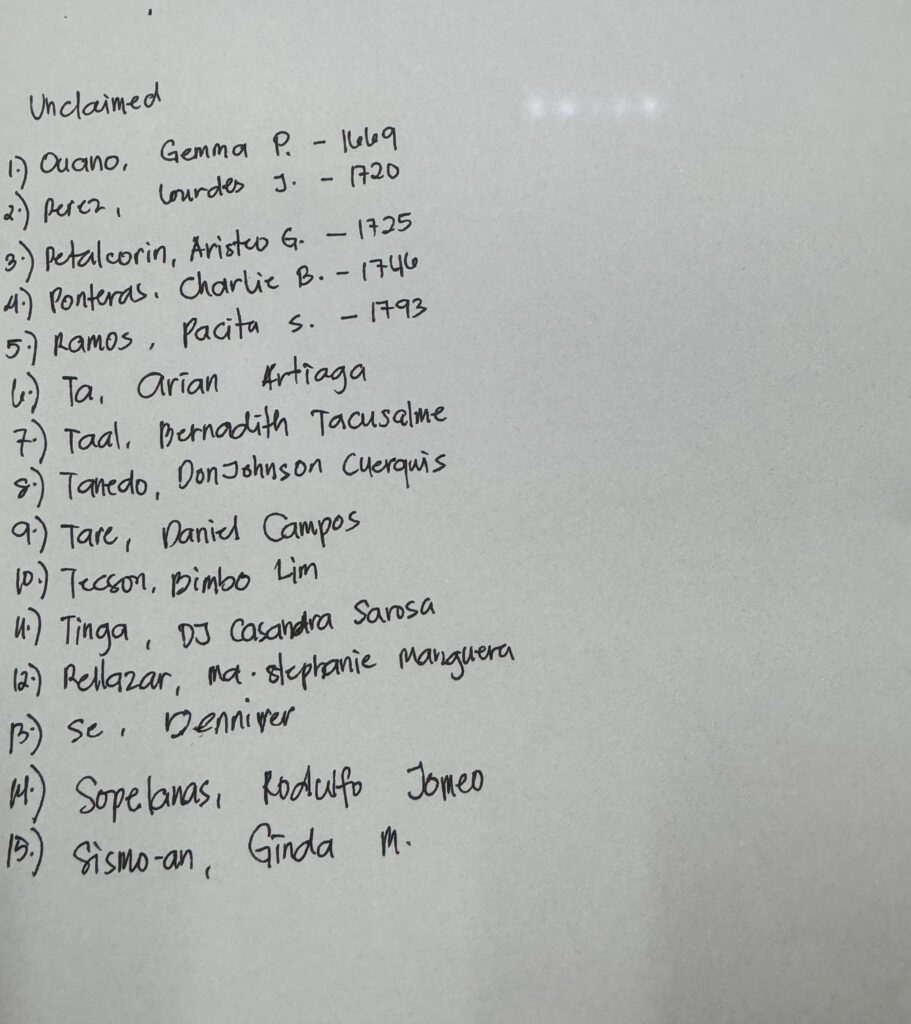 Unclaimed
1.) Ouano, Gemma P. - 1669
2.) Perez, Lourdes J. - 1720
3.) Petalcorin, Aristeo G. - 1725
4.) Ponteras, Charlie B. - 1746
5.) Ramos, Pacita S. - 1793
6.) Ta, Arian Artiaga
7.) Taal, Bernadith Tacusalme
8.) Tanedo, DonJohnson Cuerquis
9.) Tare, Daniel Campos
10.) Tecson, Bimbo Lim
11.) Tinga, DJ Casandra Sarosa
12.) Rellazar, Ma. Stephanie Manguera
13.) Se, Denniver
14.) Sopelanas, Rodulfo Jomeo
15.) Sismo-an, Ginda M.